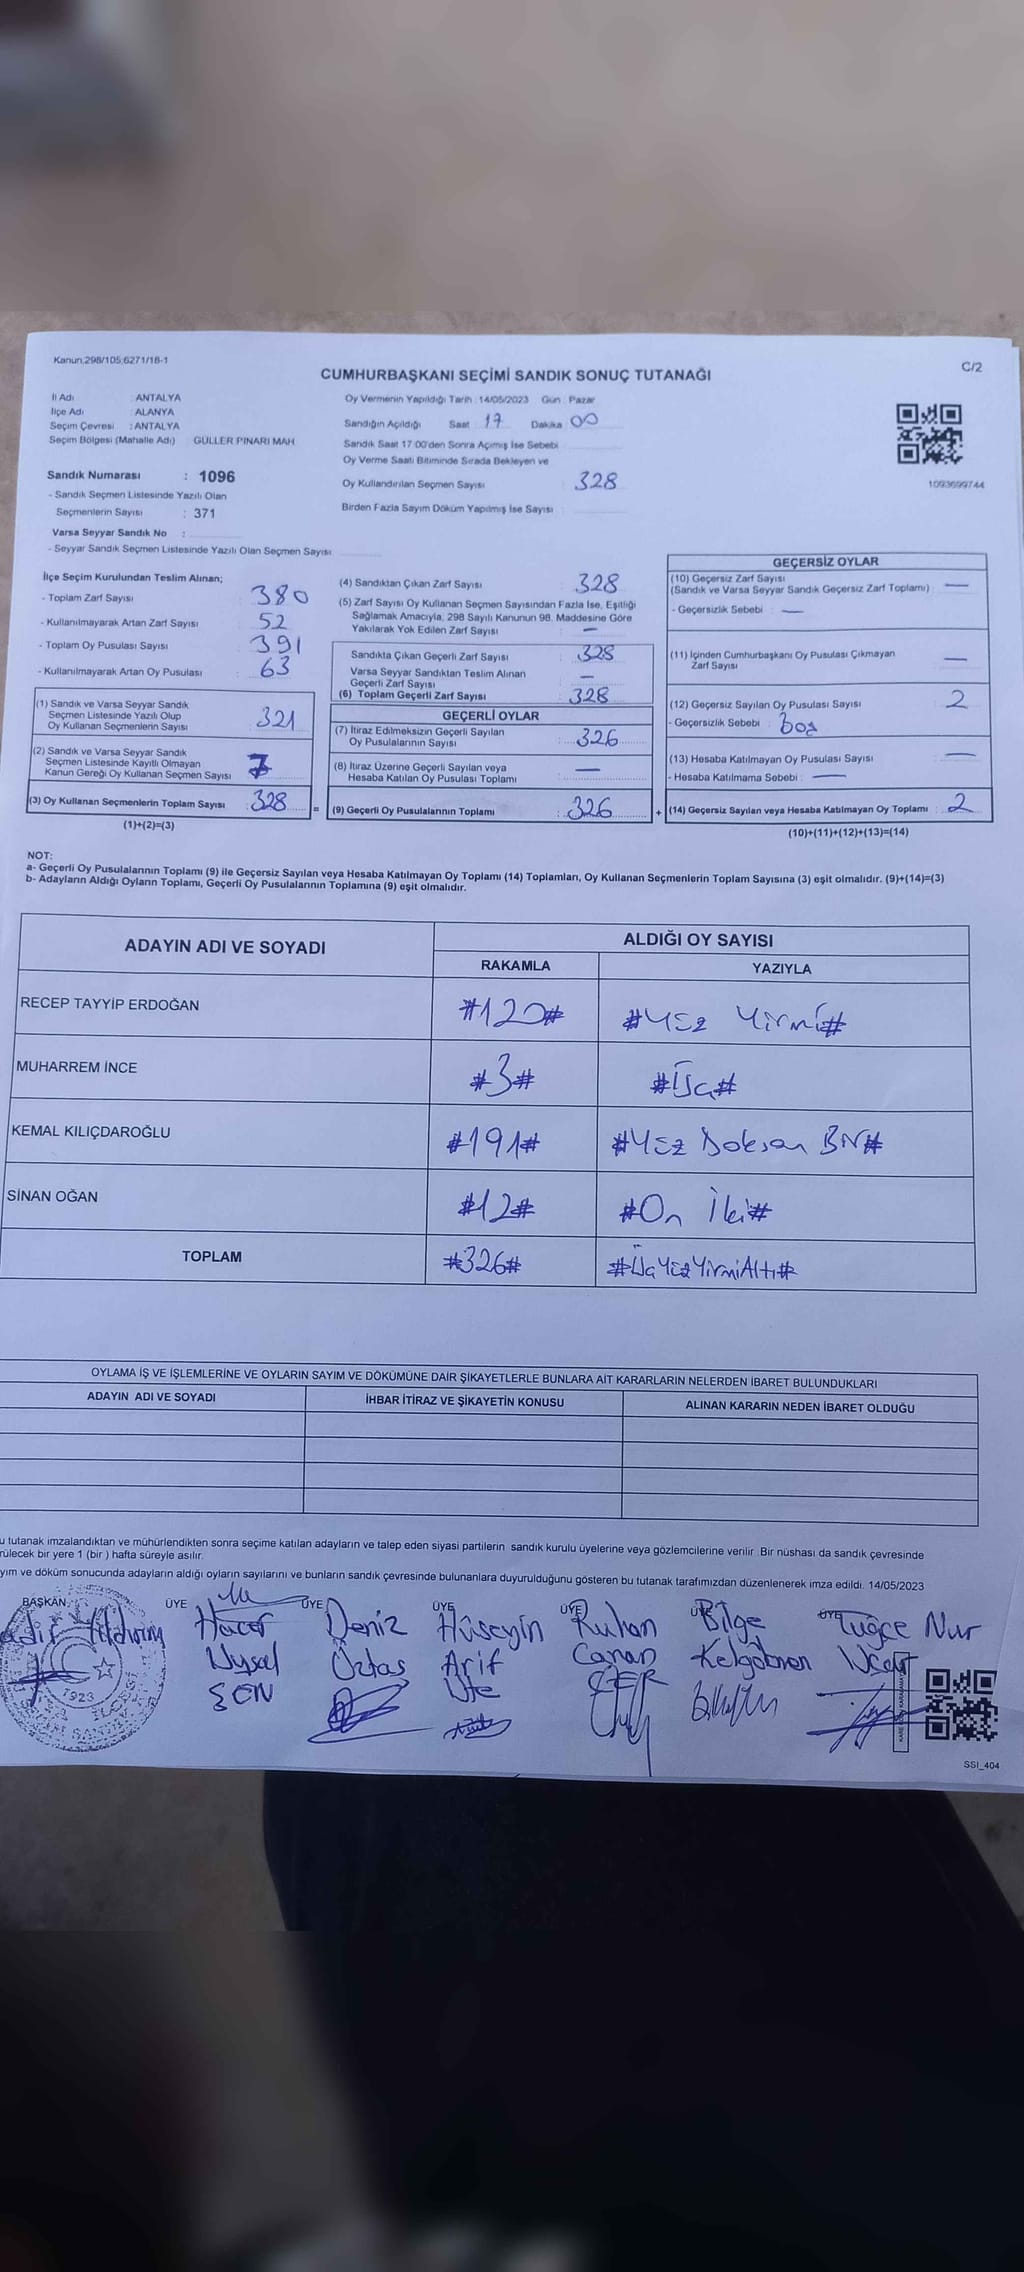 Kanun:298/105;6271/18-1
C/2
CUMHURBAŞKANI SEÇİMİ SANDIK SONUÇ TUTANAĞI
İl Adı : ANTALYA
İlçe Adı : ALANYA
Seçim Çevresi : ANTALYA
Seçim Bölgesi (Mahalle Adı) GÜLLER PINARI MAH
Oy Vermenin Yapıldığı Tarih : 14/05/2023 Gün : Pazar
Sandığın Açıldığı Saat 17 Dakika 00
Sandık Saat 17:00'den Sonra Açımış İse Sebebi
Oy Verme Saati Bitiminde Sırada Bekleyen ve
Oy Kullandırılan Seçmen Sayısı : 328
Birden Fazla Sayım Döküm Yapılmış İse Sayısı :
1093699744
Sandık Numarası : 1096
- Sandık Seçmen Listesinde Yazılı Olan
Seçmenlerin Sayısı : 371
Varsa Seyyar Sandık No :
- Seyyar Sandık Seçmen Listesinde Yazılı Olan Seçmen Sayısı
İlçe Seçim Kurulundan Teslim Alınan;
- Toplam Zarf Sayısı : 380
- Kullanılmayarak Artan Zarf Sayısı : 52
- Toplam Oy Pusulası Sayısı : 391
- Kullanılmayarak Artan Oy Pusulası : 63
(1) Sandık ve Varsa Seyyar Sandık
Seçmen Listesinde Yazılı Olup
Oy Kullanan Seçmenlerin Sayısı : 321
(2) Sandık ve Varsa Seyyar Sandık
Seçmen Listesinde Kayıtlı Olmayan
Kanun Gereği Oy Kullanan Seçmen Sayısı : 7
(3) Oy Kullanan Seçmenlerin Toplam Sayısı : 328 =
(1)+(2)=(3)
(4) Sandıktan Çıkan Zarf Sayısı : 328
(5) Zarf Sayısı Oy Kullanan Seçmen Sayısından Fazla İse, Eşitliği
Sağlamak Amacıyla, 298 Sayılı Kanunun 98. Maddesine Göre
Yakılarak Yok Edilen Zarf Sayısı : —
Sandıkta Çıkan Geçerli Zarf Sayısı : 328
Varsa Seyyar Sandıktan Teslim Alınan
Geçerli Zarf Sayısı : —
(6) Toplam Geçerli Zarf Sayısı : 328
GEÇERLİ OYLAR
(7) İtiraz Edilmeksizin Geçerli Sayılan
Oy Pusulalarının Sayısı : 326
(8) İtiraz Üzerine Geçerli Sayılan veya
Hesaba Katılan Oy Pusulası Toplamı : —
(9) Geçerli Oy Pusulalarının Toplamı : 326 +
GEÇERSİZ OYLAR
(10) Geçersiz Zarf Sayısı
(Sandık ve Varsa Seyyar Sandık Geçersiz Zarf Toplamı) : —
- Geçersizlik Sebebi : —
(11) İçinden Cumhurbaşkanı Oy Pusulası Çıkmayan
Zarf Sayısı : —
(12) Geçersiz Sayılan Oy Pusulası Sayısı : 2
- Geçersizlik Sebebi : boş
(13) Hesaba Katılmayan Oy Pusulası Sayısı : —
- Hesaba Katılmama Sebebi : —
(14) Geçersiz Sayılan veya Hesaba Katılmayan Oy Toplamı : 2
(10)+(11)+(12)+(13)=(14)
NOT:
a- Geçerli Oy Pusulalarının Toplamı (9) ile Geçersiz Sayılan veya Hesaba Katılmayan Oy Toplamı (14) Toplamları, Oy Kullanan Seçmenlerin Toplam Sayısına (3) eşit olmalıdır. (9)+(14)=(3)
b- Adayların Aldığı Oyların Toplamı, Geçerli Oy Pusulalarının Toplamına (9) eşit olmalıdır.
ADAYIN ADI VE SOYADI
ALDIĞI OY SAYISI
RAKAMLA YAZIYLA
RECEP TAYYİP ERDOĞAN #120# #Yüz Yirmi#
MUHARREM İNCE #3# #Üç#
KEMAL KILIÇDAROĞLU #191# #Yüz Doksan Bir#
SİNAN OĞAN #12# #On İki#
TOPLAM #326# #ÜçYüzYirmiAltı#
OYLAMA İŞ VE İŞLEMLERİNE VE OYLARIN SAYIM VE DÖKÜMÜNE DAİR ŞİKAYETLERLE BUNLARA AİT KARARLARIN NELERDEN İBARET BULUNDUKLARI
ADAYIN ADI VE SOYADI İHBAR İTİRAZ VE ŞİKAYETİN KONUSU ALINAN KARARIN NEDEN İBARET OLDUĞU
u tutanak imzalandıktan ve mühürlendikten sonra seçime katılan adayların ve talep eden siyasi partilerin sandık kurulu üyelerine veya gözlemcilerine verilir. Bir nüshası da sandık çevresinde
rülecek bir yere 1 (bir ) hafta süreyle asılır.
yım ve döküm sonucunda adayların aldığı oyların sayılarını ve bunların sandık çevresinde bulunanlara duyurulduğunu gösteren bu tutanak tarafımızdan düzenlenerek imza edildi. 14/05/2023
BAŞKAN ÜYE ÜYE ÜYE ÜYE ÜYE ÜYE
adir Yıldırım Hacer Deniz Hüseyin Ruhan Bilge Tuğçe Nur
Uysal Öztaş Arif Canan
ŞEN Ute
1923
SSI_404